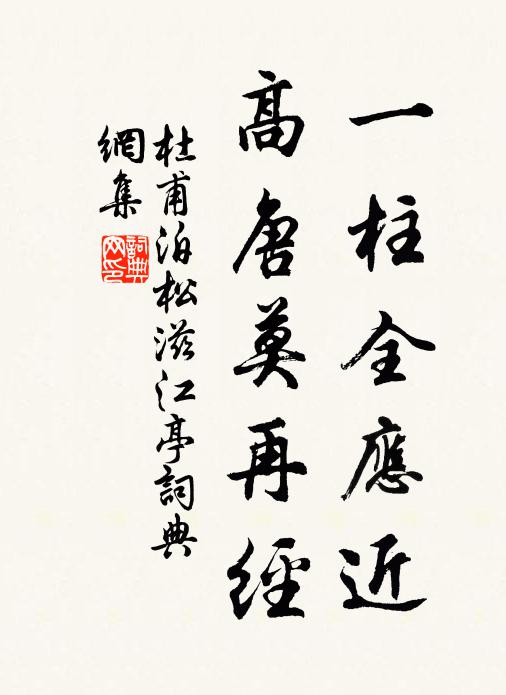 一柱全應近
高唐莫再經
杜甫泊松滋江亭詞典
網集
詞典
网印